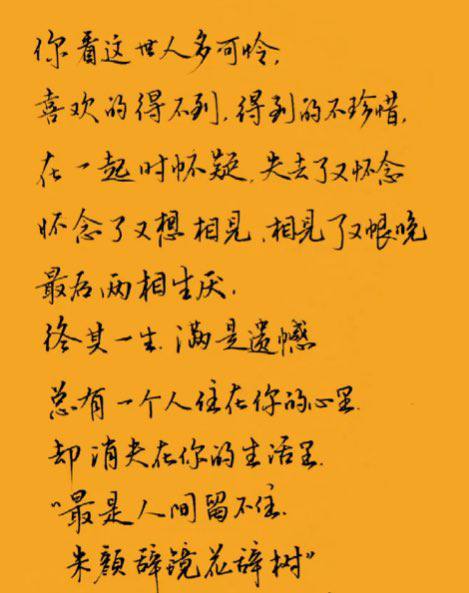 你看这世人多可怜,
喜欢的得不到,得到的不珍惜,
在一起时怀疑,失去了又怀念
怀念了又想相见,相见了又恨晚
最后两相生厌.
终其一生.满是遗憾
总有一个人住在你的心里.
却消失在你的生活里.
“最是人间留不住.
朱颜辞镜花辞树”